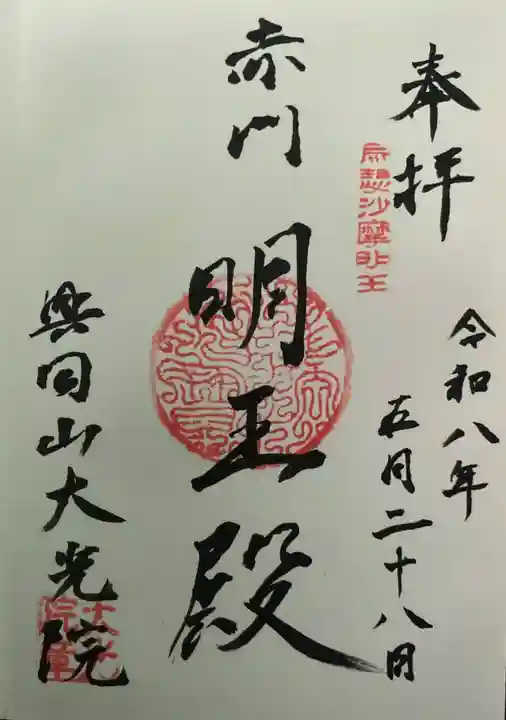 奉拝
烏瑟沙摩明王
令和八年
五月二十八日
赤門
明王殿
興同山大光院
大光院章